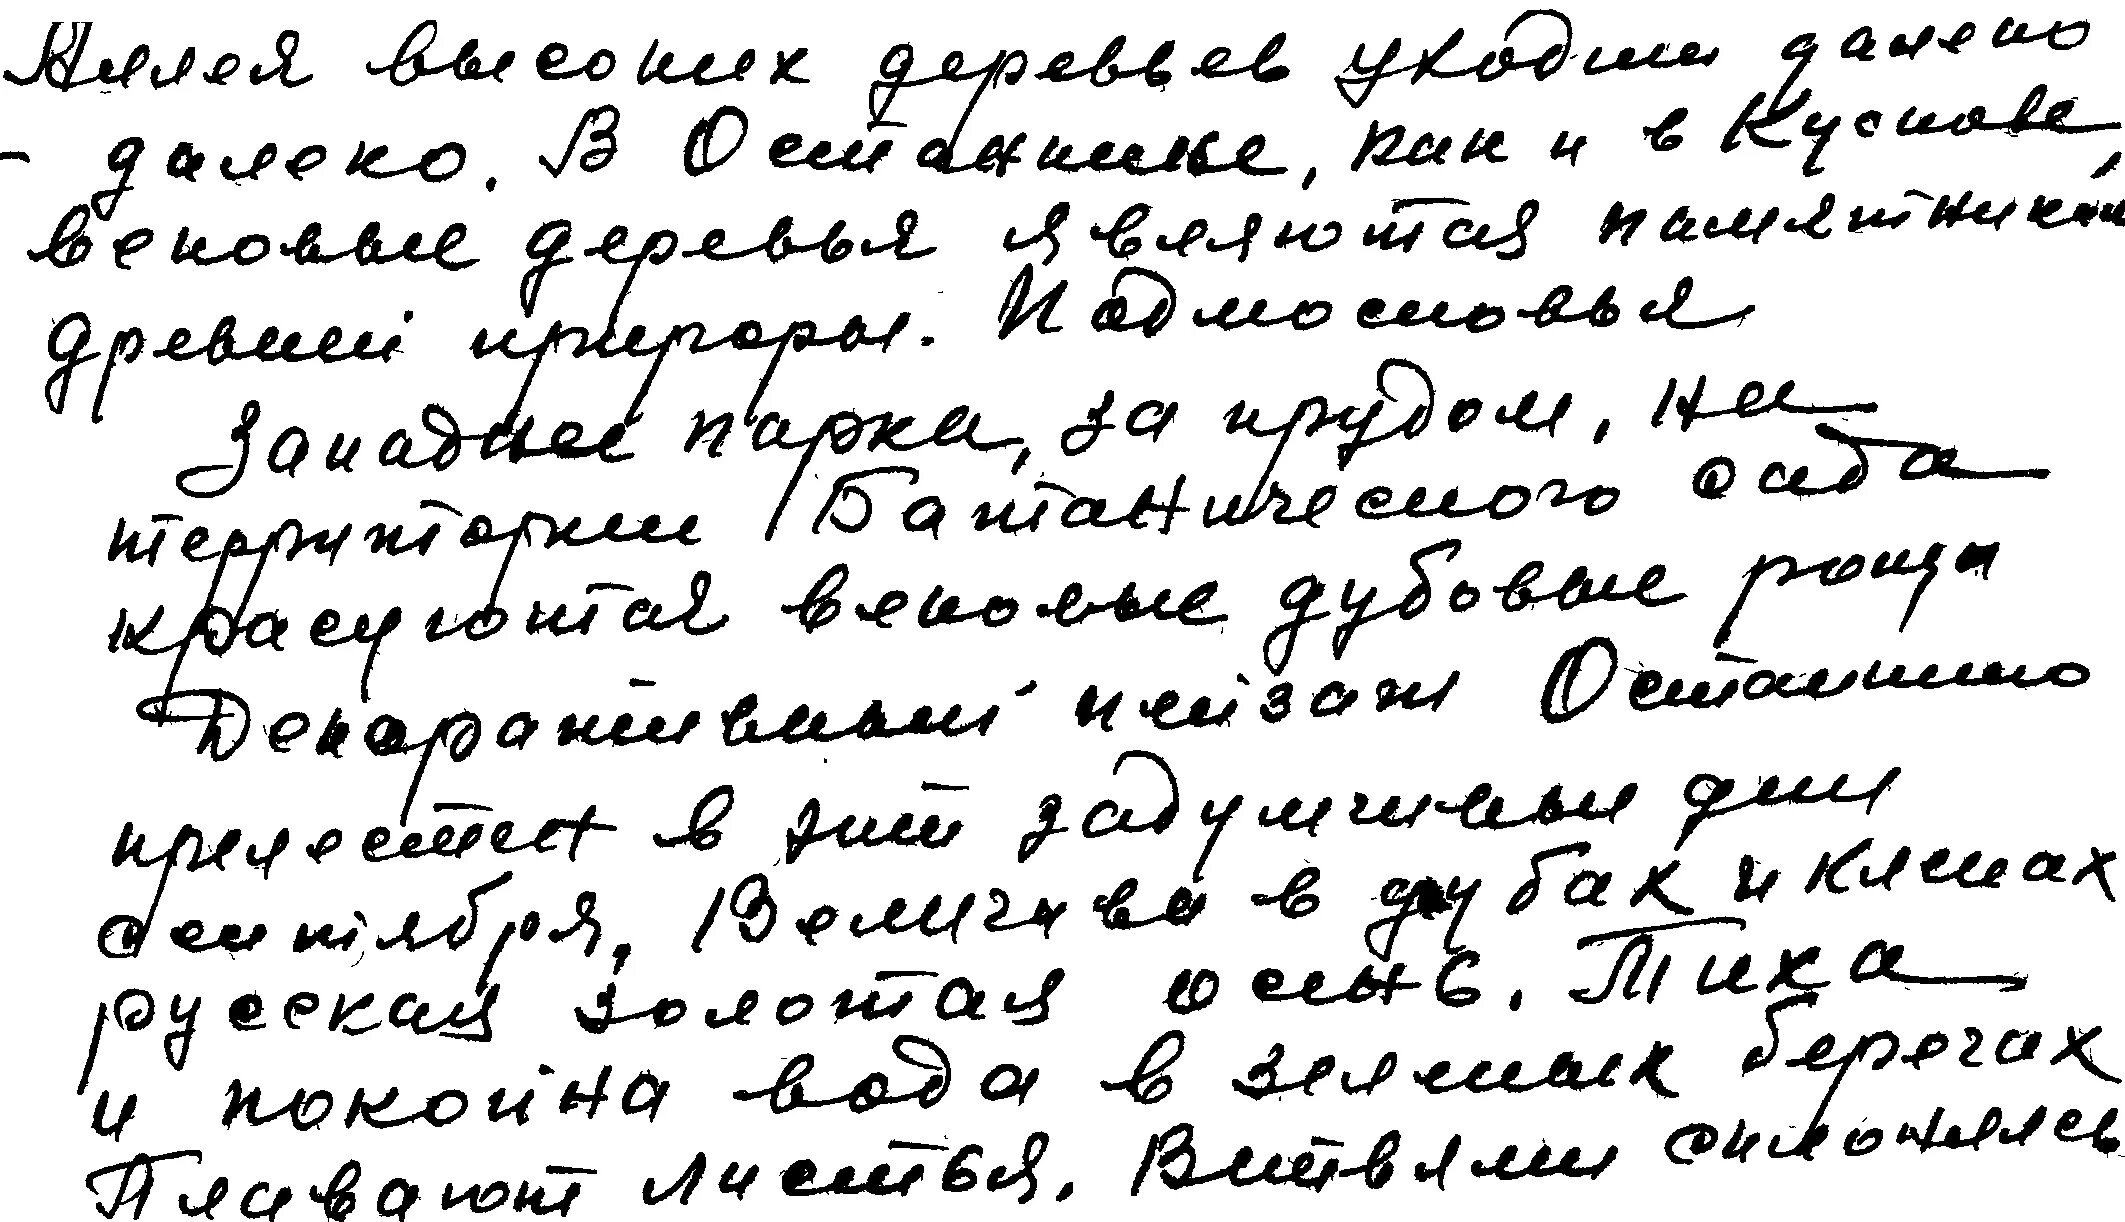 Аллея высоких деревьев уходит далеко
- далеко. В Останкине, как и в Кускове,
вековые деревья являются памятниками
древней природы. Подмосковья
Западнее парка, за прудом, на
территории Ботанического сада
красуются вековые дубовые рощи
Декоративный пейзаж Останкино
прелестен в эти задумчивые дни
сентября. Величава в дубах и кленах
русская золотая осень. Тиха
и покойна вода в зеленых берегах
Плавают листья. Ветвями склонялись